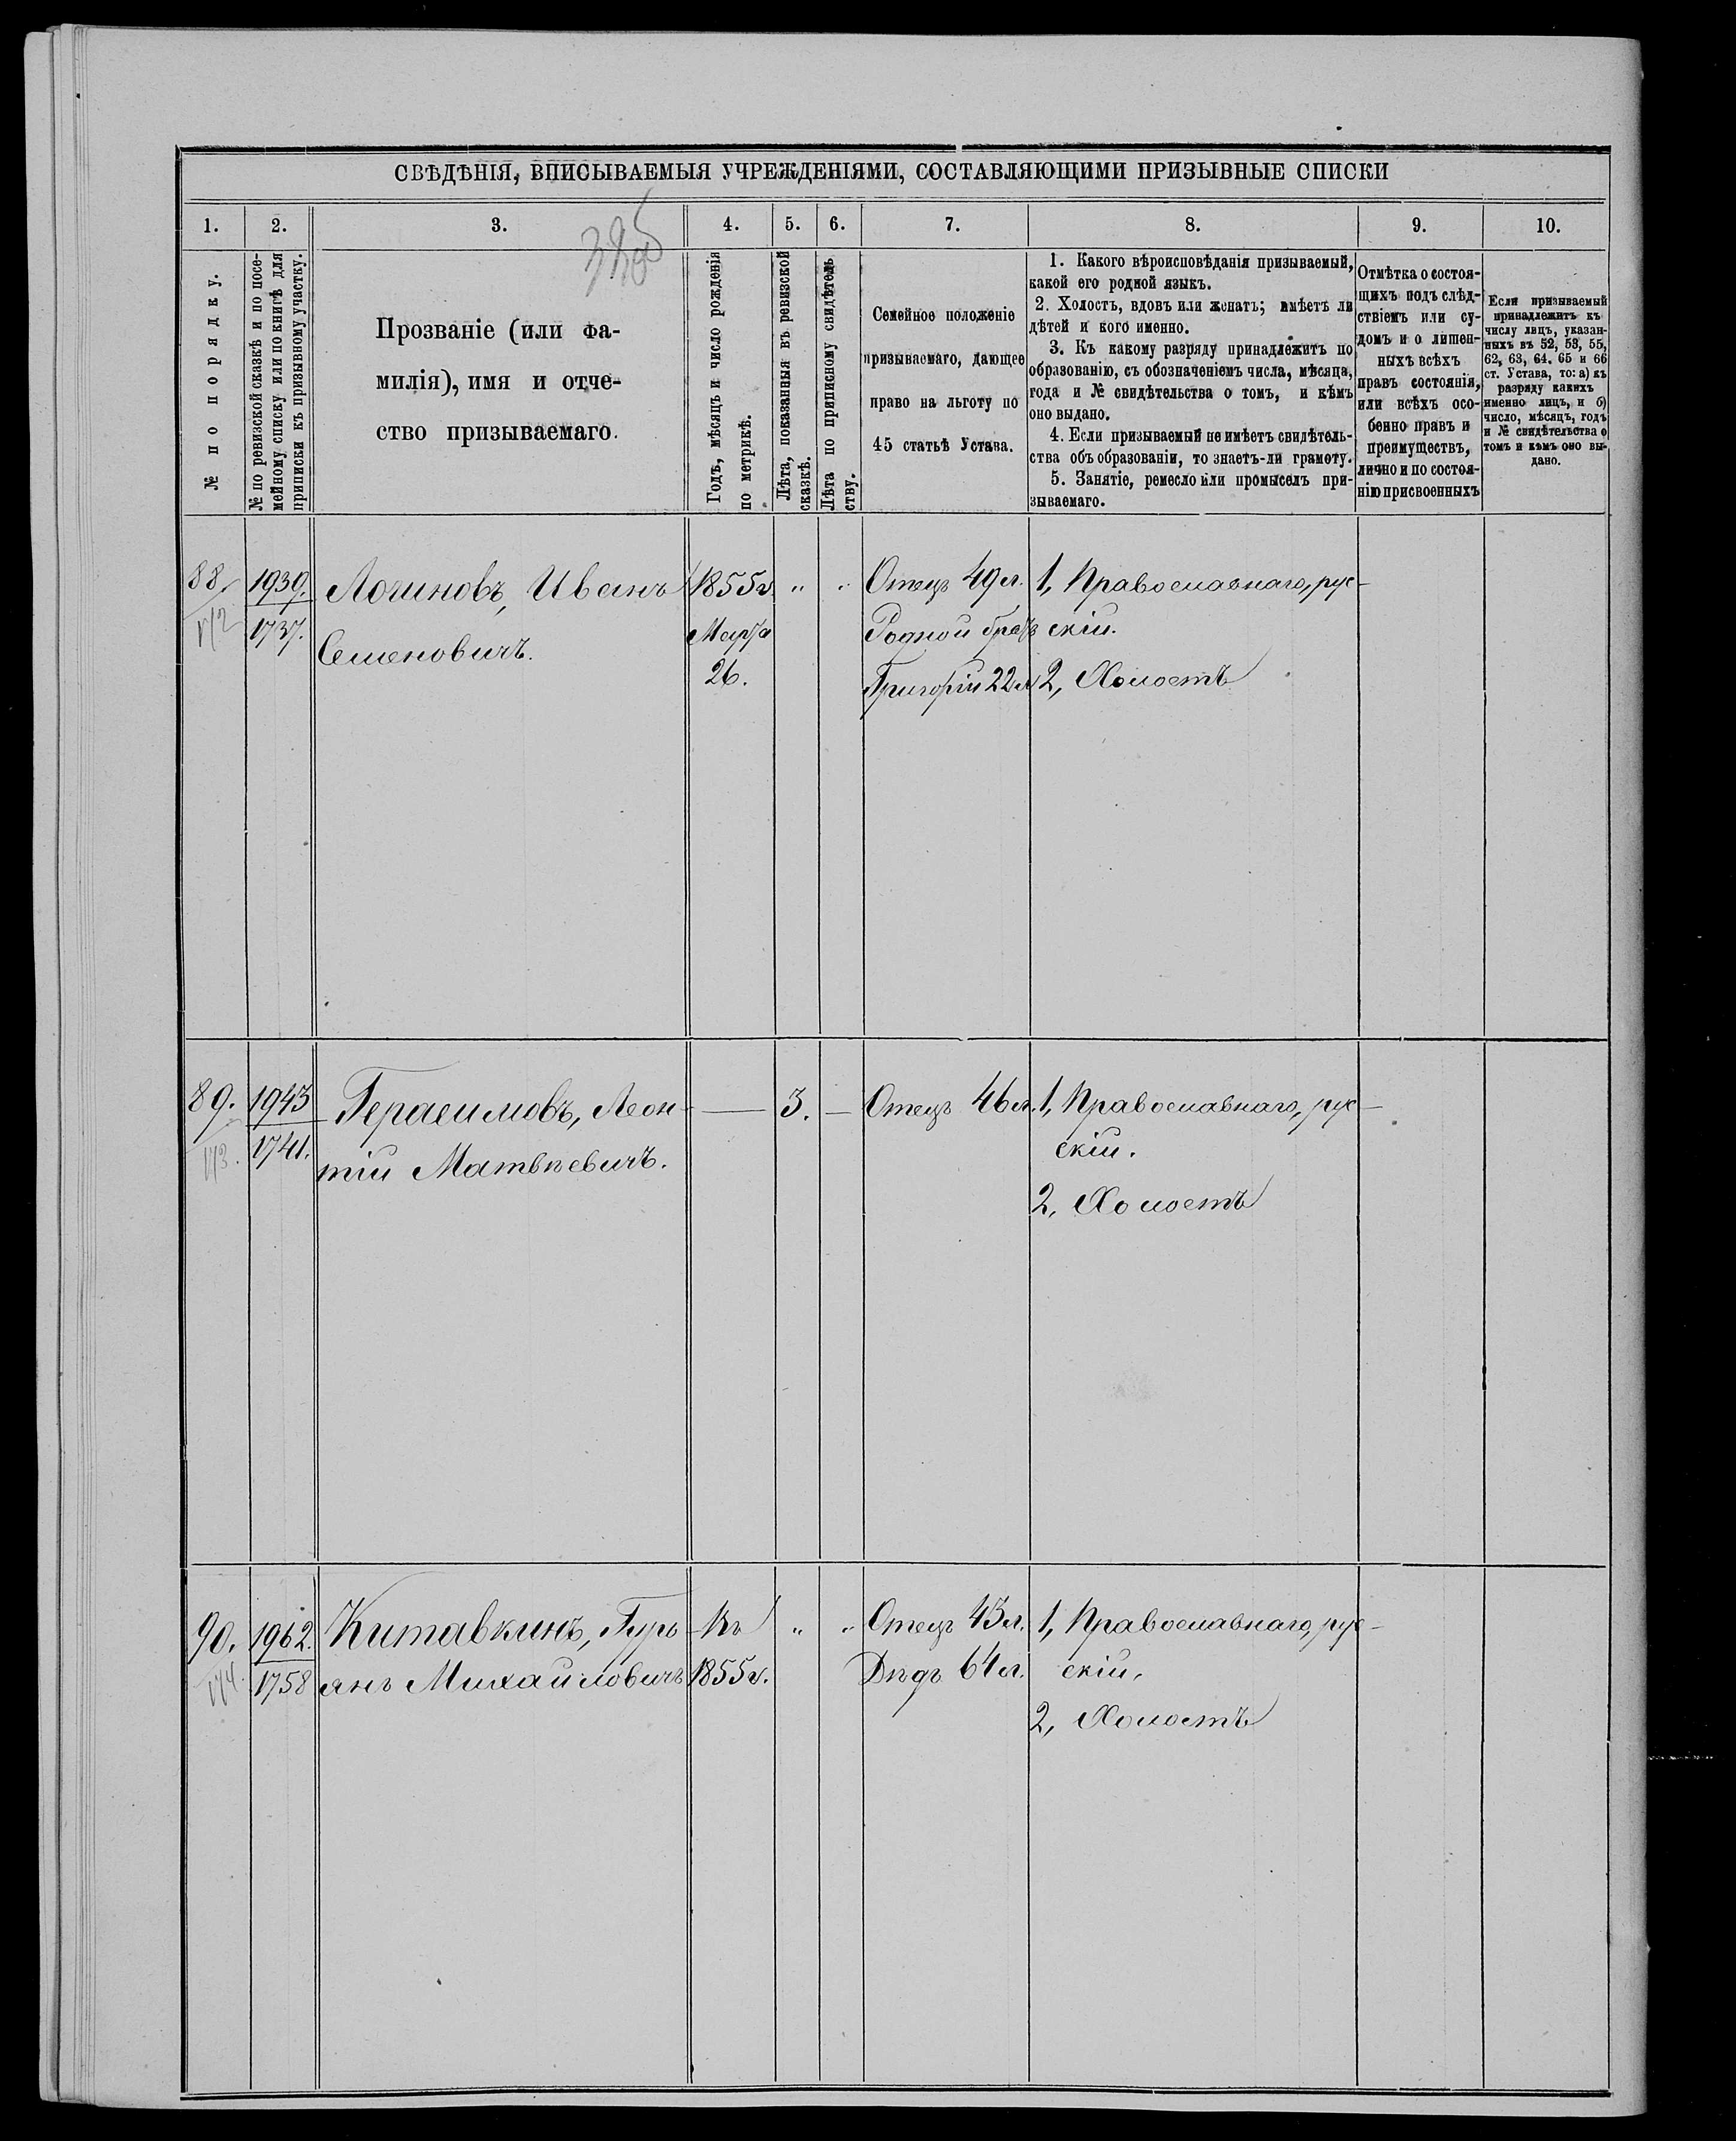 СВѢДѢНІЯ, ВПИСЫВАЕМЫЯ УЧРЕЖДЕНІЯМИ, СОСТАВЛЯЮЩИМИ ПРИЗЫВНЫЕ СПИСКИ
1. 2. 3. 4. 5. 6. 7. 8. 9. 10.
№ по порядку.
№ по ревизской сказкѣ и по посе-
мейному списку или по книгѣ для
приписки къ призывному участку.
Прозваніе (или фа-
милія), имя и отче-
ство призываемаго.
Годъ, мѣсяцъ и число рожденія
по метрикѣ.
Лѣта, показанныя въ ревизской
сказкѣ.
Лѣта по приписному свидѣтель
ству.
Семейное положеніе
призываемаго, дающее
право на льготу по
45 статьѣ Устава.
1. Какого вѣроисповѣданія призываемый,
какой его родной языкъ.
2. Холостъ, вдовъ или женатъ; имѣетъ ли
дѣтей и кого именно.
3. Къ какому разряду принадлежитъ по
образованію, съ обозначеніемъ числа, мѣсяца,
года и № свидѣтельства о томъ, и кѣмъ
оно выдано.
4. Если призываемый не имѣетъ свидѣтель-
ства объ образованіи, то знаетъ-ли грамоту.
5. Занятіе, ремесло или промыселъ при-
зываемаго.
Отмѣтка о состоя-
щихъ подъ слѣд-
ствіемъ или су-
домъ и о лишен-
ныхъ всѣхъ
правъ состоянія,
или всѣхъ осо-
бенно правъ и
преимуществъ,
лично и по состоя-
нію присвоенныхъ
Если призываемый
принадлежитъ къ
числу лицъ, указан-
ныхъ въ 52, 53, 55,
62, 63, 64. 65 и 66
ст. Устава, то: а) къ
разряду какихъ
именно лицъ, и б)
число, мѣсяцъ, годъ
и № свидѣтельства о
томъ и кѣмъ оно вы-
дано.
88. 1939. Логиновъ, Иванъ 1855г. " " Отецъ 49л. 1, Православнаго, рус-
172 1737. Семеновичъ. Марта Родной братъ скій.
26. Григорій 22л 2, Холостъ
89. 1943 Герасимовъ, Леон- — 3. — Отецъ 46л. 1, Православнаго, рус-
173. 1741. тій Матвѣевичъ. скій.
2, Холостъ
90. 1962. Китавкинъ, Гурь Къ " " Отецъ 43л. 1, Православнаго, рус-
174. 1758 янъ Михайловичъ 1855г. Дѣдъ 64л. скій,
2, Холостъ